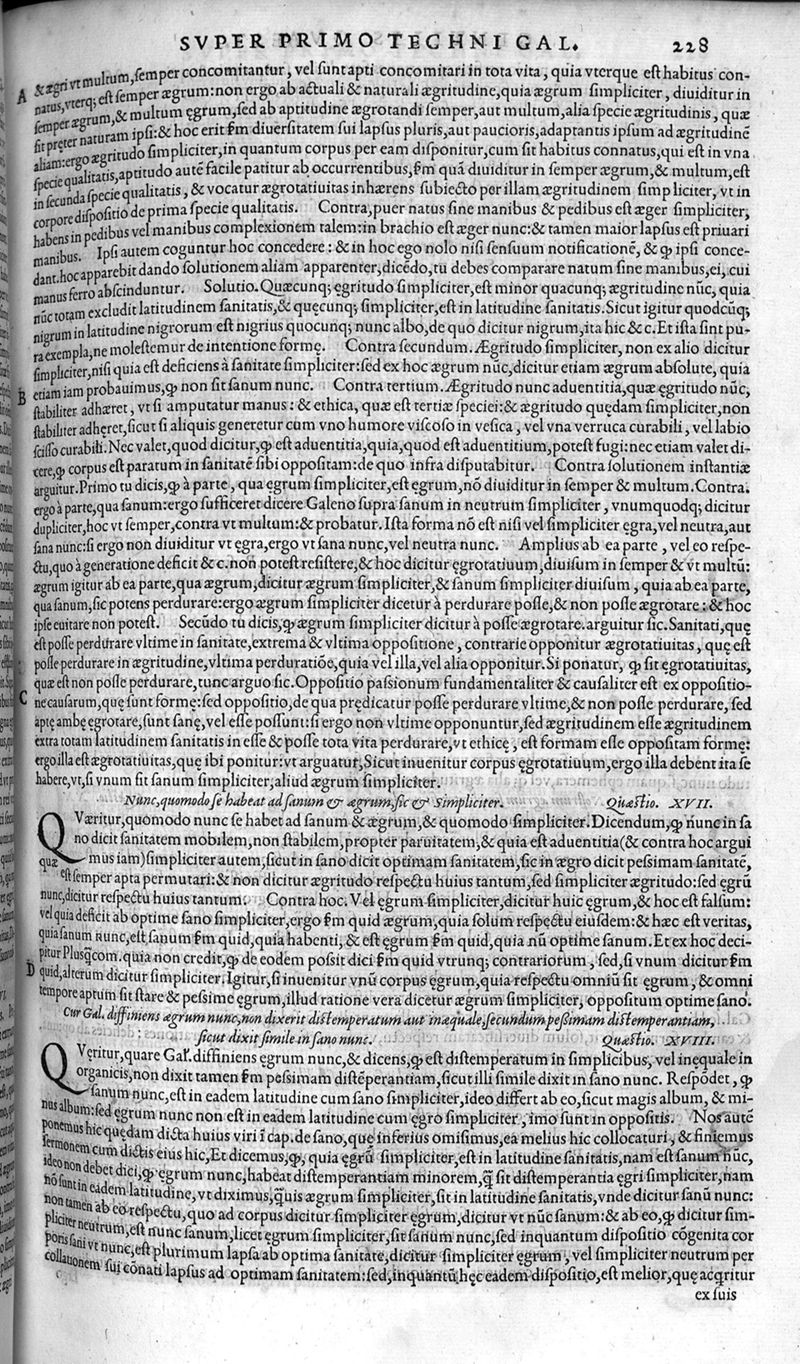 SVPER PRIMO TECHNI GAL. 228
& ægri vt multum, semper concomitantur, vel sunt apti concomitari in tota vita, quia vterque est habitus con-
A natus, vterq; est semper ægrum: non ergo ab actuali & naturali ægritudine, quia ægrum simpliciter, diuiditur in
semper ægrum, & multum ęgrum, sed ab aptitudine ægrotandi semper, aut multum, alia specie ægritudinis, quæ
fit pręter naturam ipsi: & hoc erit s̃m diuersitatem sui lapsus pluris, aut paucioris, adaptantis ipsum ad ægritudinē
aliam: ergo ægritudo simpliciter, in quantum corpus per eam disponitur, cum sit habitus connatus, qui est in vna
specie qualitatis, aptitudo autē facile patitur ab occurrentibus, s̃m quā diuiditur in semper ægrum, & multum, est
in secunda specie qualitatis, & vocatur ægrotatiuitas inhærens subiecto per illam ægritudinem simpliciter, vt in
corpore dispositio de prima specie qualitatis. Contra, puer natus sine manibus & pedibus est æger simpliciter,
habens in pedibus vel manibus complexionem talem: in brachio est æger nunc: & tamen maior lapsus est priuari
manibus. Ipsi autem coguntur hoc concedere: & in hoc ego nolo nisi sensuum notificationē, & ꝙ ipsi conce-
dant. hoc apparebit dando solutionem aliam apparenter, dicēdo, tu debes comparare natum sine manibus, ei, cui
manus ferro abscinduntur. Solutio. Quæcunq; ęgritudo simpliciter, est minor quacunq; ægritudine nūc, quia
nūc totam excludit latitudinem sanitatis, & quęcunq; simpliciter, est in latitudine sanitatis. Sicut igitur quodcūq;
nigrum in latitudine nigrorum est nigrius quocunq; nunc albo, de quo dicitur nigrum, ita hic & c. Et ista sint pu-
ra exempla, ne molestemur de intentione formę. Contra secundum. Ægritudo simpliciter, non ex alio dicitur
simpliciter, nisi quia est deficiens à sanitate simpliciter: sed ex hoc ægrum nūc, dicitur etiam ægrum absolute, quia
B etiam iam probauimus, ꝙ non sit sanum nunc. Contra tertium. Ægritudo nunc aduentitia, quæ ęgritudo nūc,
stabiliter adhæret, vt si amputatur manus: & ethica, quæ est tertiæ speciei: & ægritudo quędam simpliciter, non
stabiliter adhęret, sicut si aliquis generetur cum vno humore viscoso in vesica, vel vna verruca curabili, vel labio
scisso curabili. Nec valet, quod dicitur, ꝙ est aduentitia, quia, quod est aduentitium, potest fugi: nec etiam valet di-
cere, ꝙ corpus est paratum in sanitatē sibi oppositam: de quo infra disputabitur. Contra solutionem instantiæ
arguitur. Primo tu dicis, ꝙ à parte, qua ęgrum simpliciter, est ęgrum, nō diuiditur in semper & multum. Contra.
ergo à parte, qua sanum: ergo sufficeret dicere Galeno supra sanum in neutrum simpliciter, vnumquodq; dicitur
dupliciter, hoc vt semper, contra vt multum: & probatur. Ista forma nō est nisi vel simpliciter ęgra, vel neutra, aut
sana nunc: si ergo non diuiditur vt ęgra, ergo vt sana nunc, vel neutra nunc. Amplius ab ea parte, vel eo respe-
ctu, quo à generatione deficit & c. non potest resistere, & hoc dicitur ęgrotatiuum, diuisum in semper & vt multū:
ægrum igitur ab ea parte, qua ægrum, dicitur ægrum simpliciter, & sanum simpliciter diuisum, quia ab ea parte,
qua sanum, sic potens perdurare: ergo ægrum simpliciter dicetur à perdurare posse, & non posse ægrotare: & hoc
ipse euitare non potest. Secūdo tu dicis, ꝙ ægrum simpliciter dicitur à posse ægrotare. arguitur sic. Sanitati, quę
est posse perdurare vltime in sanitate, extrema & vltima oppositione, contrarie opponitur ægrotatiuitas, quę est
posse perdurare in ægritudine, vltima perduratiōe, quia vel illa, vel alia opponitur. Si ponatur, ꝙ sit ęgrotatiuitas,
quæ est non posse perdurare, tunc arguo sic. Oppositio passionum fundamentaliter & causaliter est ex oppositio-
C ne causarum, quę sunt formę: sed oppositio, de qua prędicatur posse perdurare vltime, & non posse perdurare, sed
aptę ambę ęgrotare, sunt sanę, vel esse possunt: si ergo non vltime opponuntur, sed ægritudinem esse ægritudinem
extra totam latitudinem sanitatis in esse & posse tota vita perdurare, vt ethicę, est formam esse oppositam formę:
ergo illa est ægrotatiuitas, quę ibi ponitur: vt arguatur, Sicut inuenitur corpus ęgrotatiuum, ergo illa debent ita se
habere, vt, si vnum sit sanum simpliciter, aliud ægrum simpliciter.
Nunc, quomodo se habeat ad sanum & ægrum, sic & Simpliciter. Quæstio. XVII.
QVæritur, quomodo nunc se habet ad sanum & ægrum, & quomodo simpliciter. Dicendum, ꝙ nunc in sa
no dicit sanitatem mobilem, non stabilem, propter paruitatem, & quia est aduentitia (& contra hoc argui
mus iam) simpliciter autem, sicut in sano dicit optimam sanitatem, sic in ægro dicit pessimam sanitatē,
quæ est semper apta permutari: & non dicitur ægritudo respectu huius tantum, sed simpliciter ægritudo: sed ęgrū
nunc, dicitur respectu huius tantum. Contra hoc. Vel ęgrum simpliciter, dicitur huic ęgrum, & hoc est falsum:
vel quia deficit ab optime sano simpliciter, ergo s̃m quid ægrum, quia solum respectu eiusdem: & hæc est veritas,
quia sanum nunc, est sanum s̃m quid, quia habenti, & est ęgrum s̃m quid, quia nū optime sanum. Et ex hoc deci-
pitur Plusq̃com. quia non credit, ꝙ de eodem possit dici s̃m quid vtrunq; contrariorum, sed, si vnum dicitur s̃m
D quid, alterum dicitur simpliciter. Igitur, si inuenitur vnū corpus ęgrum, quia respectu omniū sit ęgrum, & omni
tempore aptum sit stare & pessime ęgrum, illud ratione vera dicetur ægrum simpliciter, oppositum optime sano.
Cur Gal. diffiniens ægrum nunc, non dixerit distemperatum aut inæquale, secundum pessimam distemperantiam,
sicut dixit simile in sano nunc. Quæstio. XVIII.
QVęritur, quare Gal. diffiniens ęgrum nunc, & dicens, ꝙ est distemperatum in simplicibus, vel inęquale in
organicis, non dixit tamen s̃m pessimam distēperantiam, sicut illi simile dixit in sano nunc. Respōdet, ꝙ
sanum nunc, est in eadem latitudine cum sano simpliciter, ideo differt ab eo, sicut magis album, & mi-
nus album: sed ęgrum nunc non est in eadem latitudine cum ęgro simpliciter, imo sunt in oppositis. Nos autē
ponemus hic quędam dicta huius viri ī cap. de sano, quę inferius omisimus, ea melius hic collocaturi, & finiemus
sermonem cum dictis eius hic, Et dicemus, ꝙ, quia ęgrū simpliciter, est in latitudine sanitatis, nam est sanum nūc,
ideo non debet dici, ꝙ ęgrum nunc, habeat distemperantiam minorem, q̃ sit distemperantia ęgri simpliciter, nam
nō sunt in eadem latitudine, vt diximus, q̃uis ægrum simpliciter, sit in latitudine sanitatis, vnde dicitur sanū nunc:
non tamen ab eo respectu, quo ad corpus dicitur simpliciter ęgrum, dicitur vt nūc sanum: & ab eo, ꝙ dicitur sim-
pliciter neutrum, est nunc sanum, licet ęgrum simpliciter, sit sanum nunc, sed inquantum dispositio cōgenita cor
poris sani vt nunc, est plurimum lapsa ab optima sanitate, dicitur simpliciter ęgrum, vel simpliciter neutrum per
collationem sui conati lapsus ad optimam sanitatem: sed, inquantū hęc eadem dispositio, est melior, quę acq̃ritur
ex suis